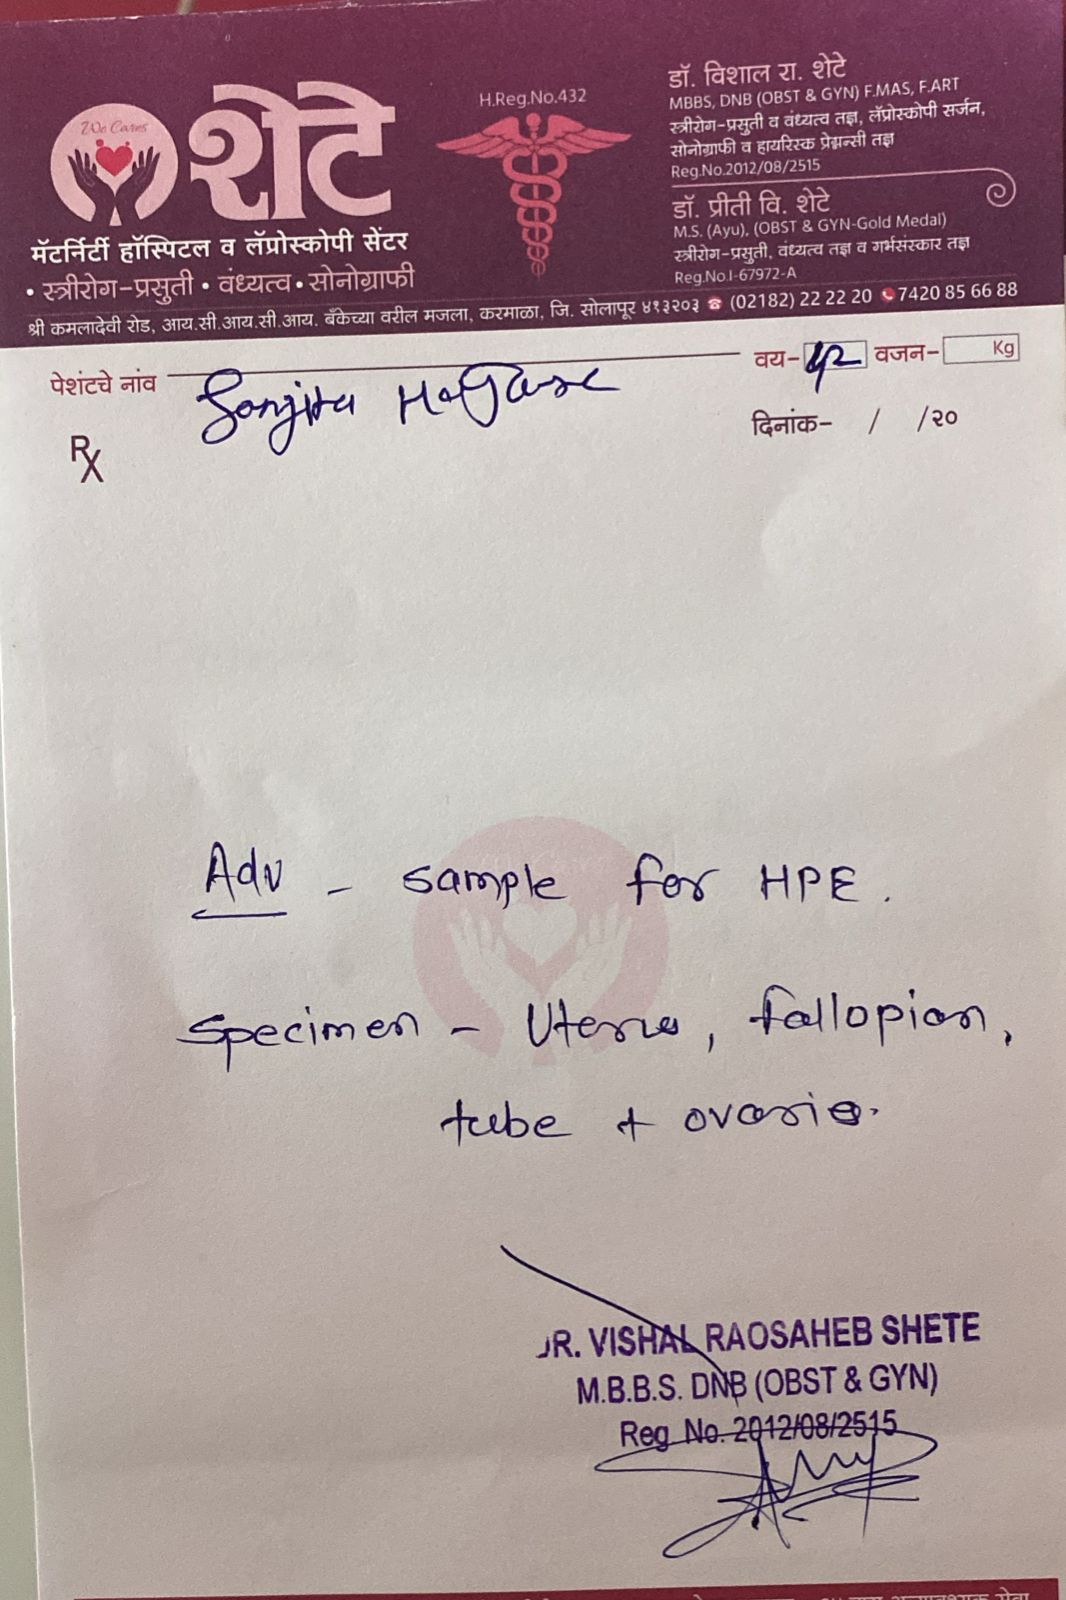 We Cares
शेटे
मॅटर्निर्टी हॉस्पिटल व लॅप्रोस्कोपी सेंटर
• स्त्रीरोग-प्रसुती • वंध्यत्व • सोनोग्राफी
H.Reg.No.432
डॉ. विशाल रा. शेटे
MBBS, DNB (OBST & GYN) F.MAS, F.ART
स्त्रीरोग-प्रसुती व वंध्यत्व तज्ञ, लॅप्रोस्कोपी सर्जन,
सोनोग्राफी व हायरिस्क प्रेग्नन्सी तज्ञ
Reg.No.2012/08/2515
डॉ. प्रीती वि. शेटे
M.S. (Ayu), (OBST & GYN-Gold Medal)
स्त्रीरोग-प्रसुती, वंध्यत्व तज्ञ व गर्भसंस्कार तज्ञ
Reg.No.I-67972-A
श्री कमलादेवी रोड, आय.सी.आय.सी.आय. बँकेच्या वरील मजला, करमाळा, जि. सोलापूर ४१३२०३ ☎ (02182) 22 22 20 📞7420 85 66 88
पेशंटचे नांव वय- 42 वजन- Kg
Rx दिनांक- / /२०
Adv - sample for HPE.
specimen - Uterus, fallopian,
tube + ovaries.
DR. VISHAL RAOSAHEB SHETE
M.B.B.S. DNB (OBST & GYN)
Reg No. 2012/08/2515